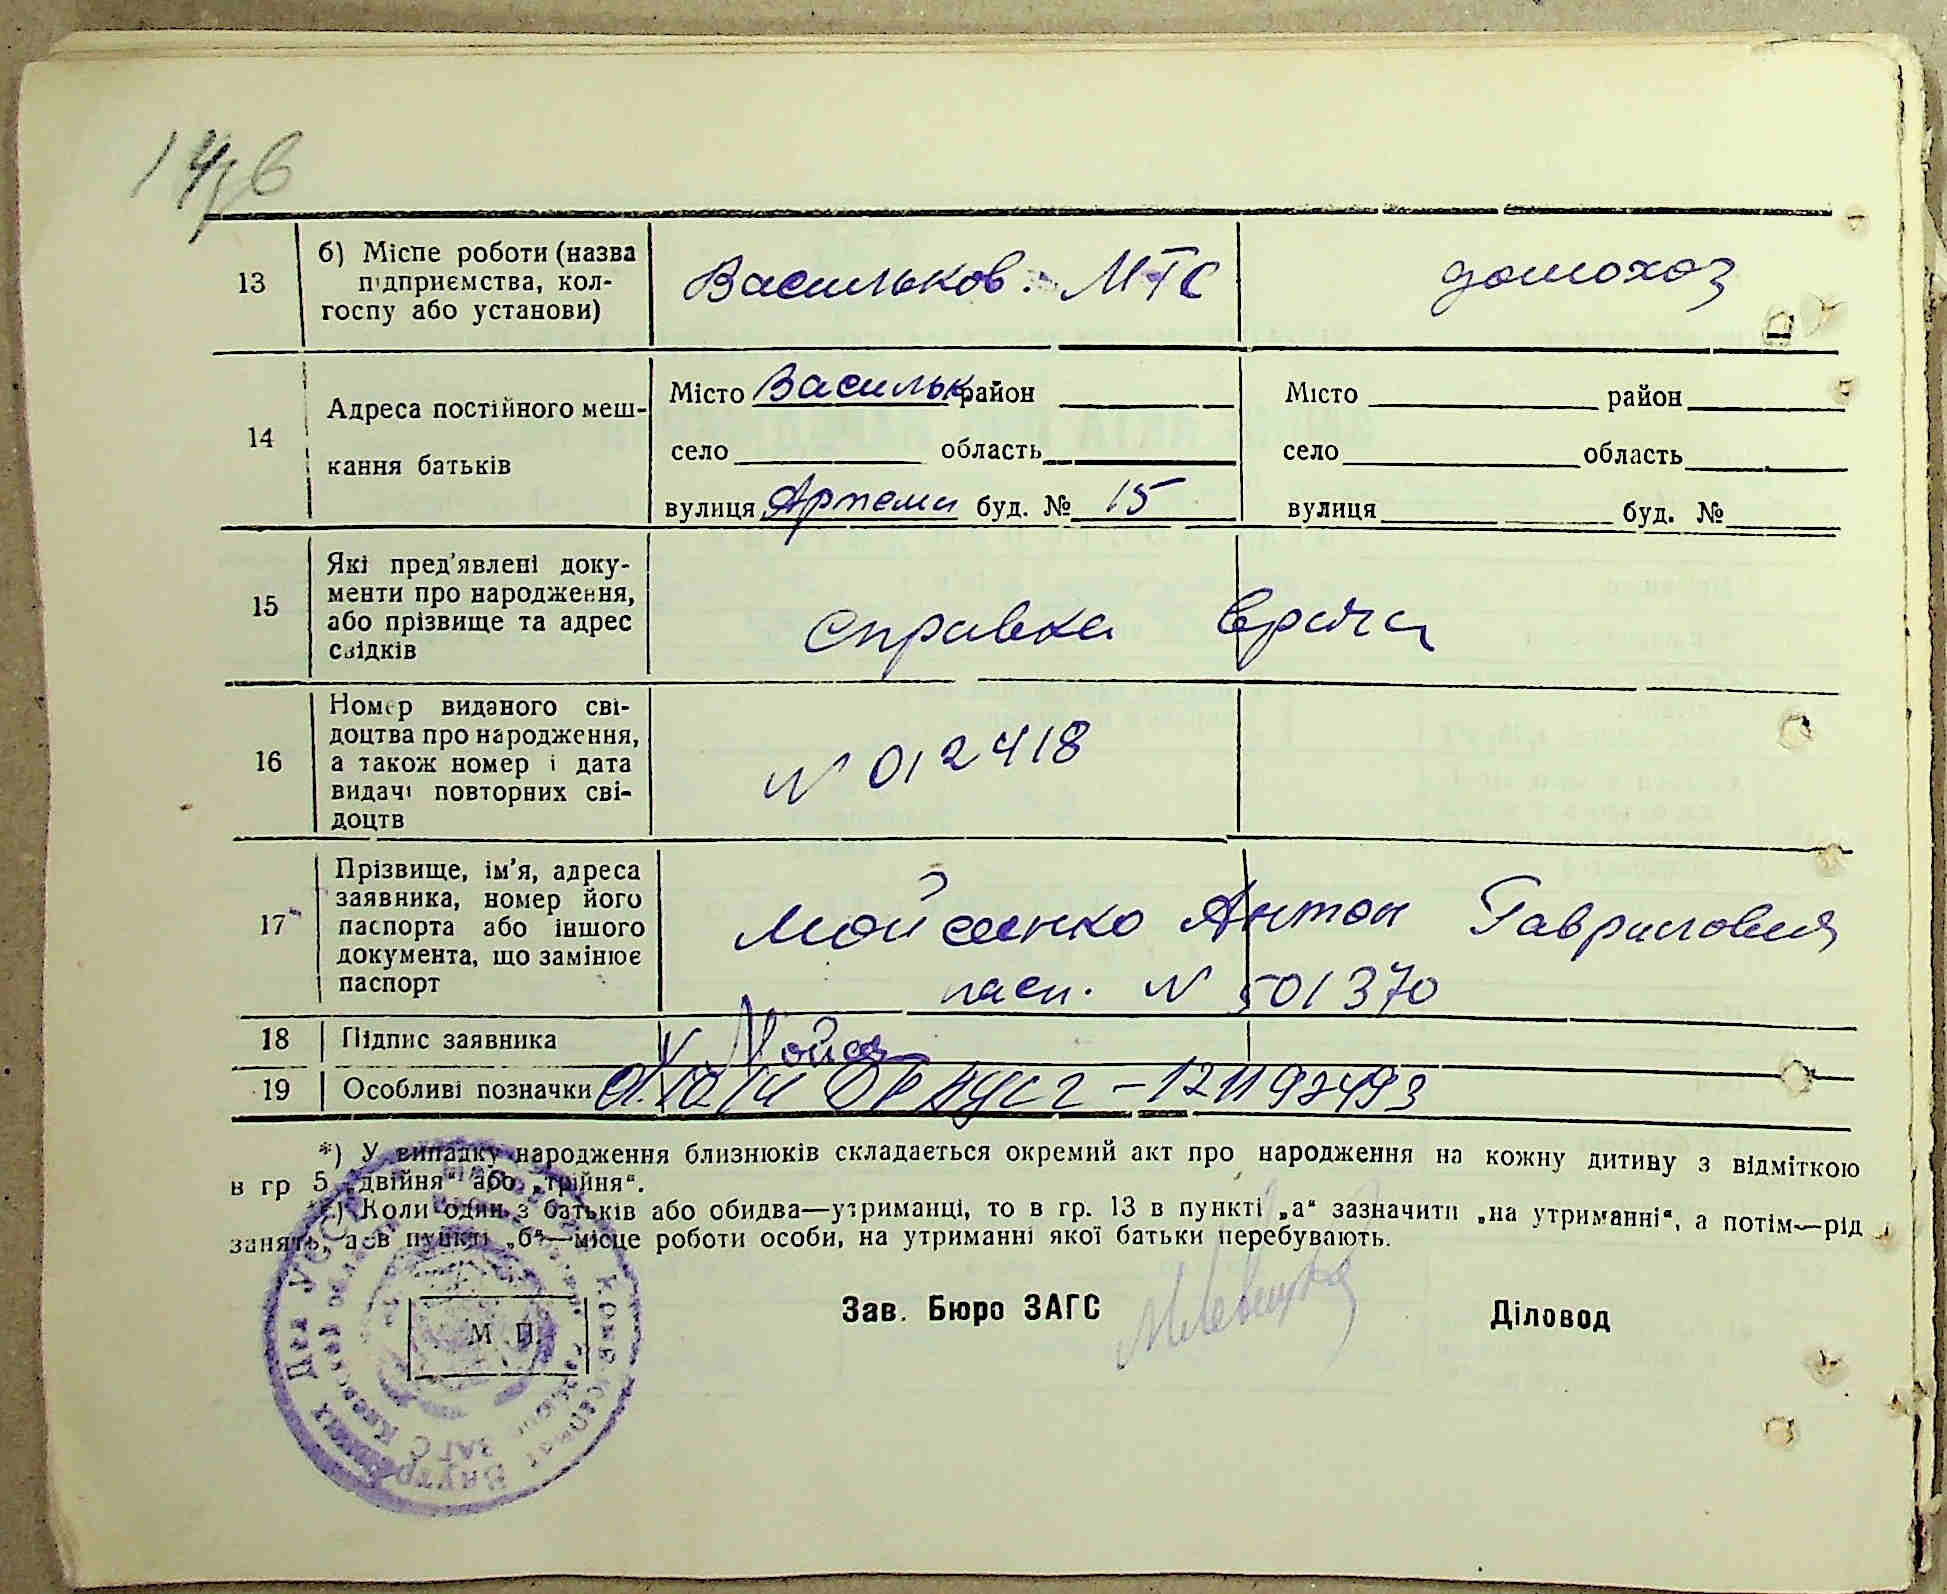 13
б) Місце роботи (назва
підприємства, кол-
госпу або установи)
Васильков. МТС
домохоз
14
Адреса постійного меш-
кання батьків
Місто Васильк район
село область
вулиця Артема буд. № 15
Місто район
село область
вулиця буд. №
15
Які пред'явлені доку-
менти про народження,
або прізвище та адрес
свідків
справка врача
16
Номер виданого сві-
доцтва про народження,
а також номер і дата
видачі повторних сві-
доцтв
N 012418
17
Прізвище, ім'я, адреса
заявника, номер його
паспорта або іншого
документа, що замінює
паспорт
Мойсеенко Антон Гаврилович
пасп. N 501370
18
Підпис заявника
Мойсе
19
Особливі позначки
*) У випадку народження близнюків складається окремий акт про народження на кожну дитину з відміткою
в гр 5 „двійня“ або „трійня“.
Коли один з батьків або обидва—утриманці, то в гр. 13 в пункті „а“ зазначити „на утриманні“, а потім—рід
занять, а в пункті „б“—місце роботи особи, на утриманні якої батьки перебувають.
М П.
Зав. Бюро ЗАГС
Діловод